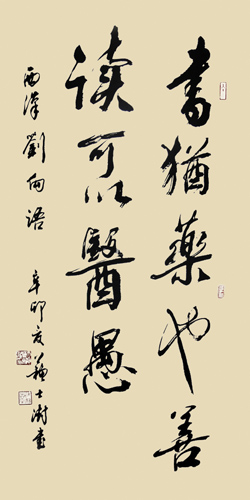 書猶藥也善
读可以醫愚
西漢劉向语 辛卯夏蘇士澍書